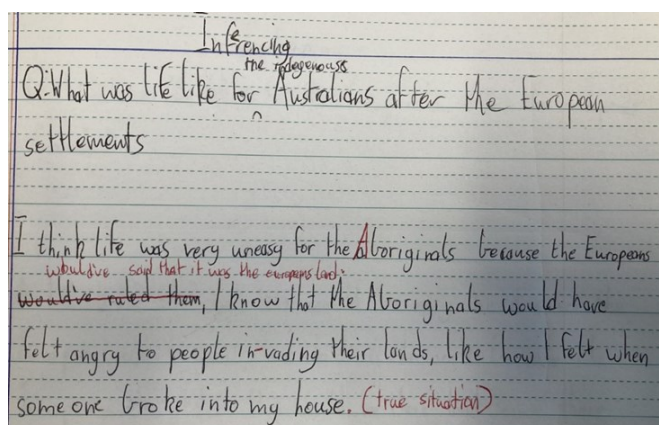 Infrencing
e
the indegenouss
Q:What was life like for ^ Australians after the European
settlements
I think life was very uneasy for the Aboriginals because the Europeans
would've said that it was the europeans land.
would've ruled them, I know that the Aboriginals would have
felt angry to people in-vading their lands, like how I felt when
someone broke into my house. (true situation)